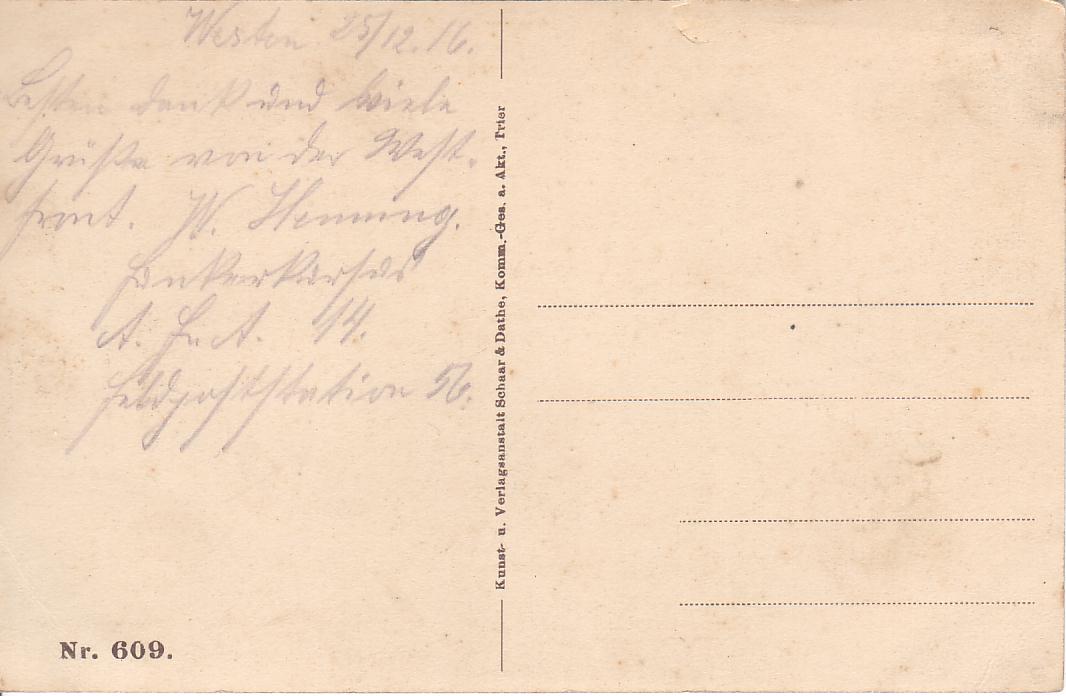 Westen 25/12.16.
Besten Dank und Viele
Grüße von der West-
front. W. Henning.
A. 14.
Feldpoststation 56.
Kunst- u. Verlagsanstalt Schaar & Dathe, Komm.-Ges. a. Akt., Trier
Nr. 609.